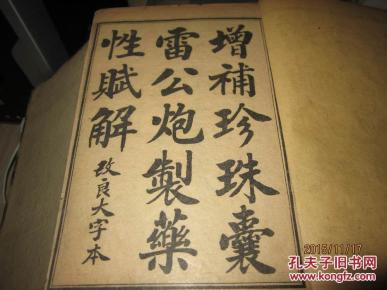 增補珍珠囊
雷公炮製藥
性賦解
改良大字本
2015/11/17
孔夫子旧书网